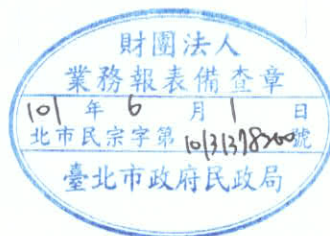 財團法人
業務報表備查章
101年6月1日
北市民宗字第10131378200號
臺北市政府民政局